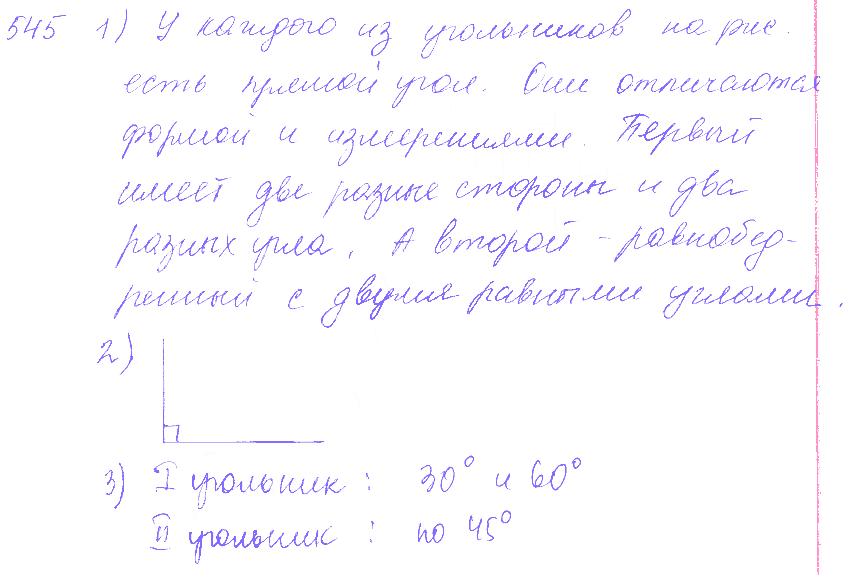 545 1) У каждого из угольников на рис.
есть прямой угол. Они отличаются
формой и измерениями. Первый
имеет две разные стороны и два
разных угла. А второй - равнобед-
ренный с двумя равными углами.
2)
3) I угольник: 30° и 60°
II угольник: по 45°